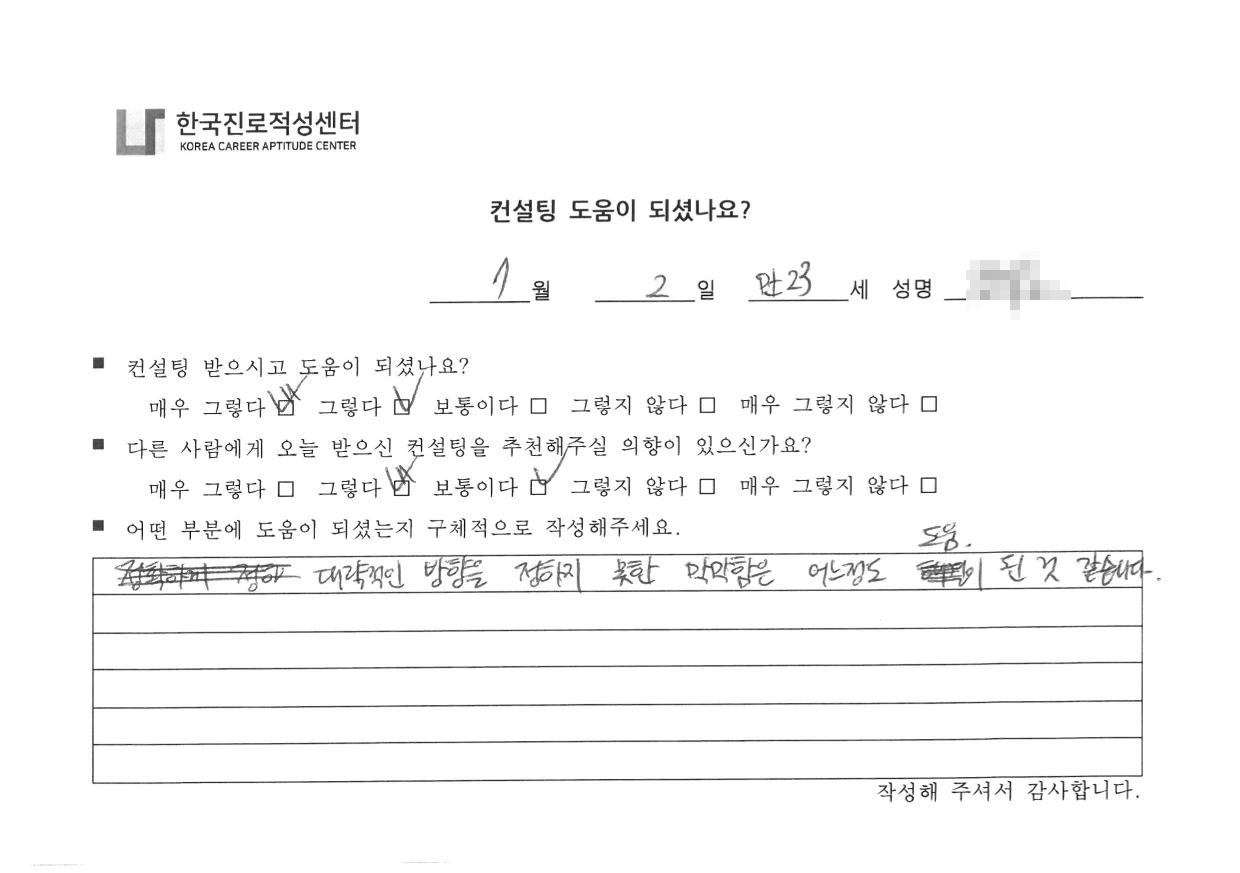 한국진로적성센터
KOREA CAREER APTITUDE CENTER
컨설팅 도움이 되셨나요?
1월 2일 만23세 성명
■ 컨설팅 받으시고 도움이 되셨나요?
매우 그렇다 ☑ 그렇다 ☑ 보통이다 □ 그렇지 않다 □ 매우 그렇지 않다 □
■ 다른 사람에게 오늘 받으신 컨설팅을 추천해주실 의향이 있으신가요?
매우 그렇다 □ 그렇다 ☑ 보통이다 ☑ 그렇지 않다 □ 매우 그렇지 않다 □
■ 어떤 부분에 도움이 되셨는지 구체적으로 작성해주세요.
도움.
대략적인 방향을 정하지 못한 막막함은 어느정도 이 된 것 같습니다.
작성해 주셔서 감사합니다.